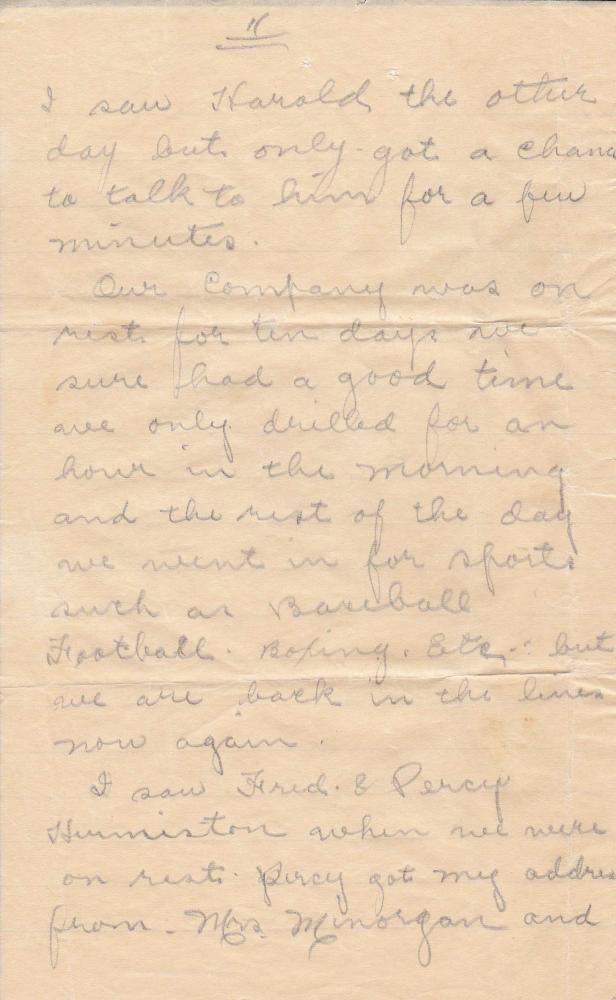 "
I saw Harold the other
day but only got a chanc
to talk to him for a few
minutes.
Our Company was on
rest for ten days we
sure had a good time
we only drilled for an
hour in the morning
and the rest of the day
we went in for sports
such as Baseball
Football. Boxing. Etc. but
we are back in the lines
now again.
I saw Fred. & Percy
Hermiston when we were
on rest. Percy got my addres
from. Mrs. Minorgan and